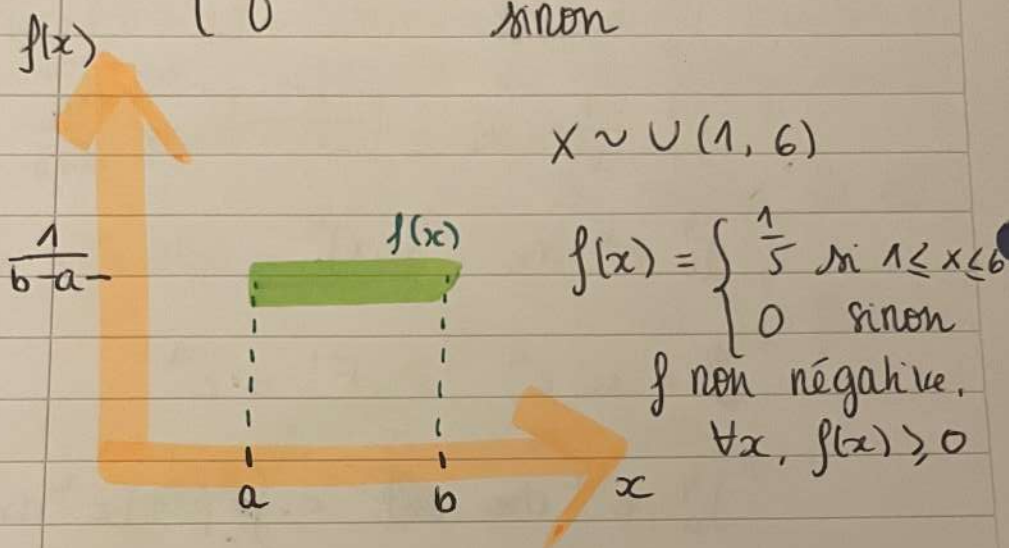 ( 0 sinon
f(x)
X ~ U (1, 6)
1
b-a
f(x)
f(x) = { 1/5 si 1≤ x ≤6
0 sinon
f non négative.
∀x, f(x) ≥ 0
a b x